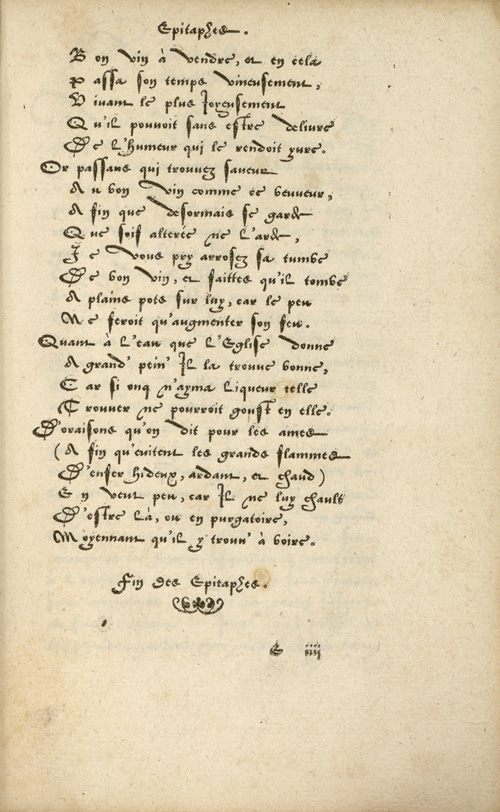 Epitaphes.
Bon vin à vendre, et en cela
Passa son temps vineusement,
Vivant le plus Joyeusement
Qu'il pouvoit sans estre delivre
De l'humeur qui le rendoit yvre.
Or passans qui trouvez saveur
Au bon vin comme ce beuveur,
Afin que desormais se garde
Que soif alterée ne l'arde,
Je vous pry arrosez sa tumbe
De bon vin, et faittes qu'il tombe
A plains pots sur luy, car le peu
Ne feroit qu'augmenter son feu.
Quant à l'eau que l'Eglise donne
A grand' pein' Il la trouve bonne,
Car si onq n'ayma liqueur telle
Trouver ne pourroit goust en elle.
D'oraisons qu'on dit pour les ames
(Afin qu'evitent les grands flammes
D'enfer hideux, ardant, et chaud)
En veut peu, car Il ne luy chault
D'estre là, ou en purgatoire,
Moyennant qu'il y trouv' à boire.
Fin des Epitaphes.
E iiii